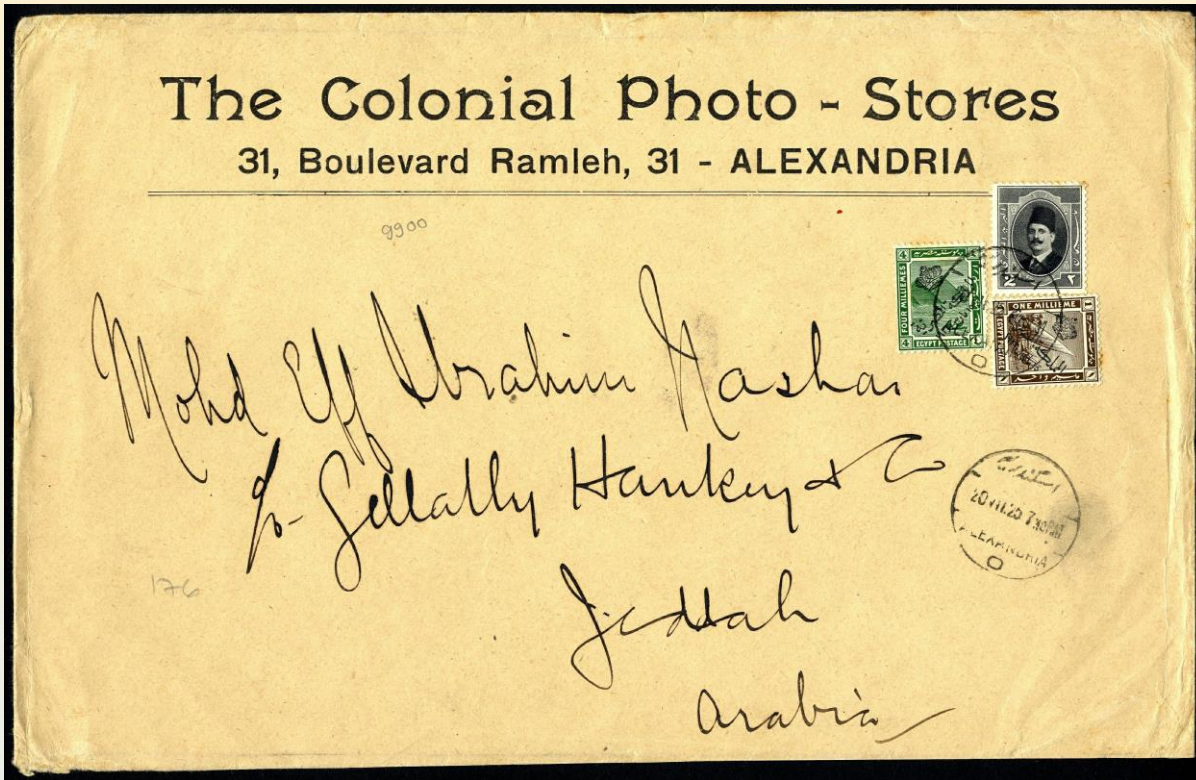 The Colonial Photo - Stores
31, Boulevard Ramleh, 31 - ALEXANDRIA
9900
2 ٢
4 FOUR MILLIEMES 4
EGYPT POSTAGE
ONE MILLIEME
EGYPT POSTAGE
Mohd Eff Ibrahim Nashar
c/o Gellatly Hankey & Co
Jeddah
Arabia
اسكندرية
20 VII.25 7
ALEXANDRIA
O
176